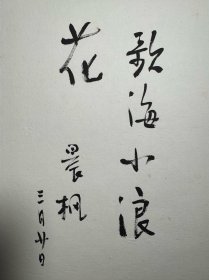 歌海小浪
花
晨枫
三月廿日